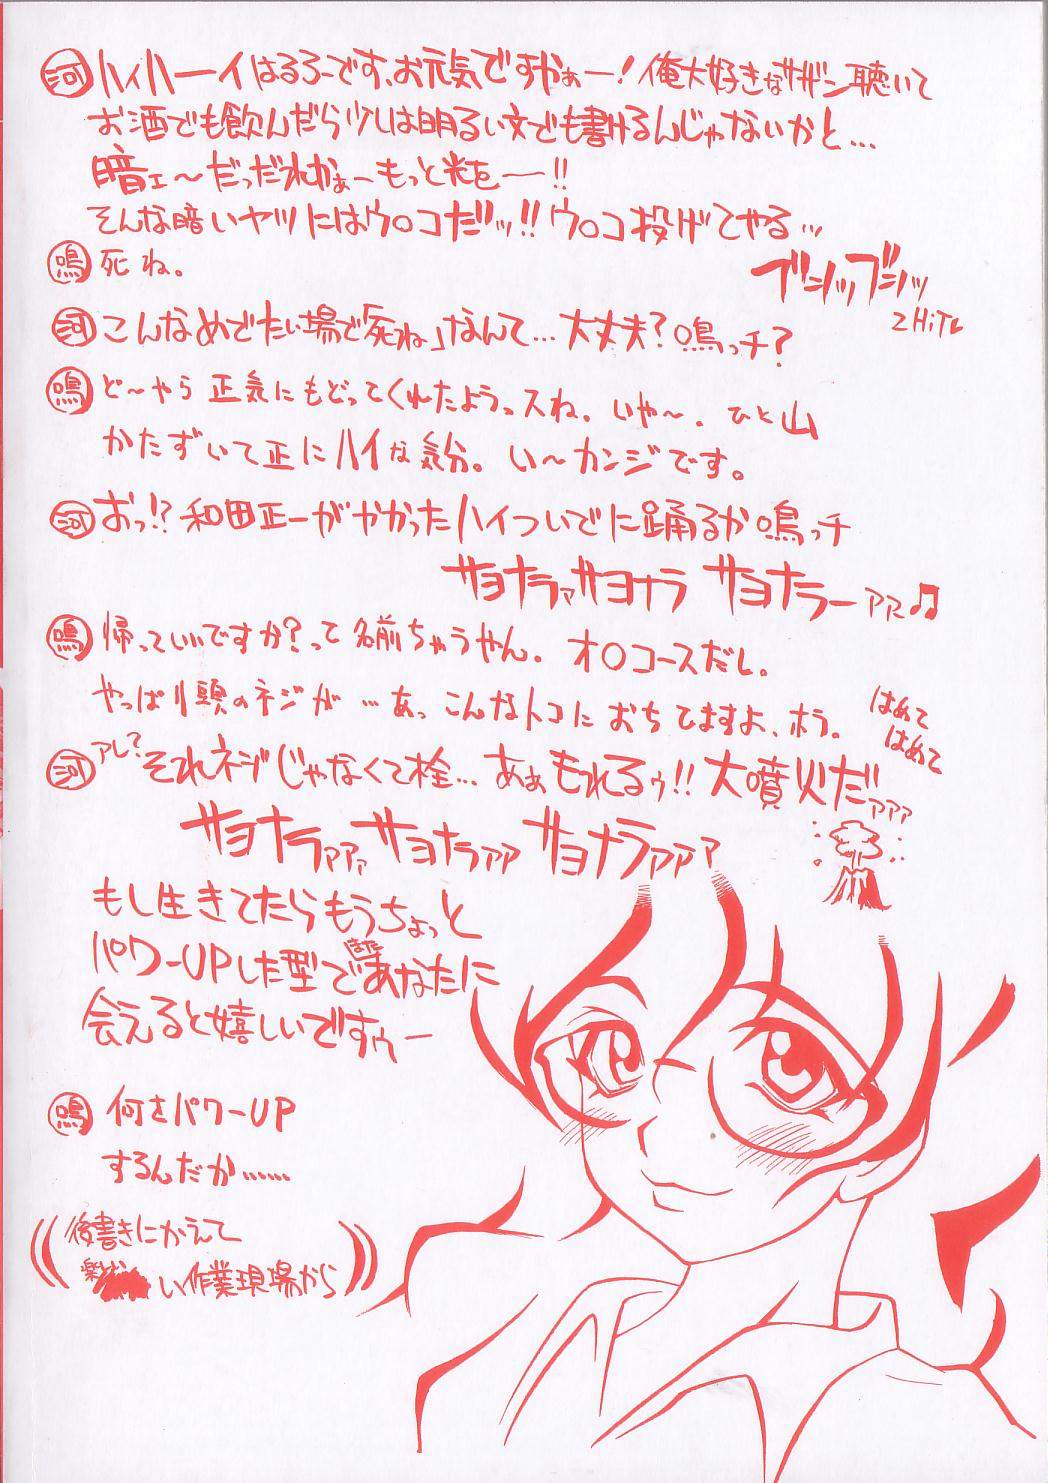 河 ハイハーイはるろーです、お元気ですかぁー!俺大好きなサザン聴いて
お酒でも飲んだら少しは明るい文でも書けるんじゃないかと…
暗ェ〜だっだれかぁーもっと光をー!!
そんな暗いヤツにはウ○コだッ!!ウ○コ投げてやる…
鳴 死ね。
ブシッブシッ
2HIT
河 こんなめでたい場で「死ね」なんて…大丈夫?鳴っチ?
鳴 ど〜やら正気にもどってくれたようっスね。いや〜。ひと山
かたずいて正にハイな気分。い〜カンジです。
河 おっ!?和田正一がやかったハイついでに踊るか鳴っチ
サヨナラァサヨナラ サヨナラーァァ♫
鳴 帰っていいですか?って名前ちゃうやん。オ○コースだし。
やっぱり頭のネジが…あっこんなトコにおちてますよ、ホラ。
はめて
はめて
河 アレ?それネジじゃなくて栓…あぁもれるゥ!!大噴火だァァァ
サヨナラァァァサヨナラァァサヨナラァァァ
もし生きてたらもうちょっと
パワーUPした型であなたに
会えると嬉しいですぅー
鳴 何をパワーUP
するんだか……
後書きにかえて
い作業現場から